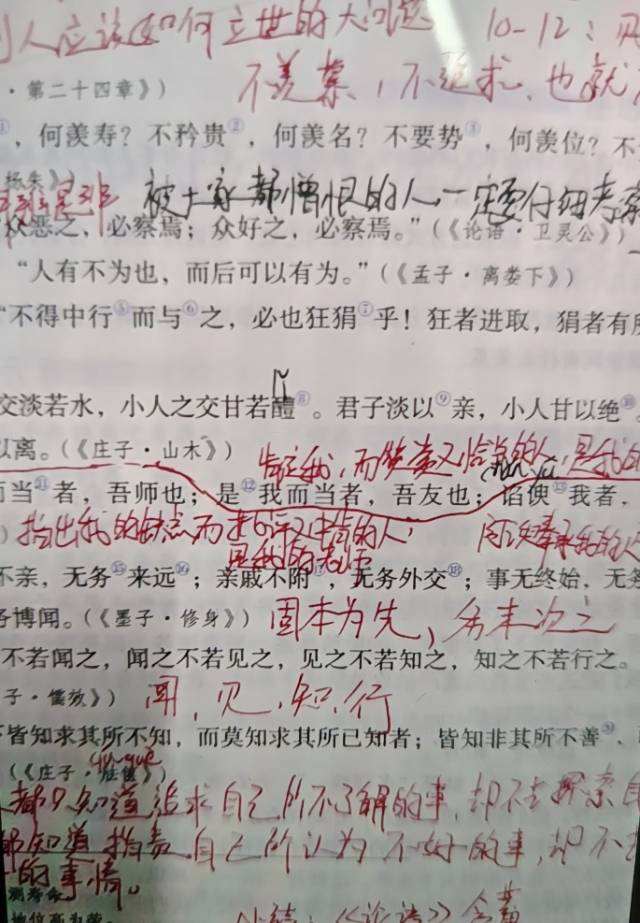 人应该如何立世的大问题 10-12：
·第二十四章》） 不羡慕，不追求，也就
①，何羡寿？不矜贵②，何羡名？不要势③，何羡位？不
被大家都憎恨的人一定要仔细考察
众恶之，必察焉；众好之，必察焉。”（《论语·卫灵公》）
“人有不为也，而后可以有为。”（《孟子·离娄下》）
“不得中行⑤而与⑥之，必也狂狷⑦乎！狂者进取，狷者有所
交淡若水，小人之交甘若醴⑧。君子淡以⑨亲，小人甘以绝⑩
以离。（《庄子·山木》） 肯定我，而 又恰当的人，是我的
而当⑫者，吾师也；是我而当者，吾友也；谄谀⑬我者，
指出我的缺点而 的人，
是我的老师
不亲，无务⑮来远⑯；亲戚不附⑰，无务外交⑱；事无终始，无务
务博闻。（《墨子·修身》） 固本为先，务末次之
不若闻之，闻之不若见之，见之不若知之，知之不若行之。
子·儒效》） 闻，见，知，行
下皆知求其所不知，而莫知求其所已知者；皆知非其所不善⑳，
（《庄子·胠箧》）
都只知道追求自己所不了解的事，却不去探索自
都知道指责自己所认为不好的事，却不
的事情。
小结：《论语》